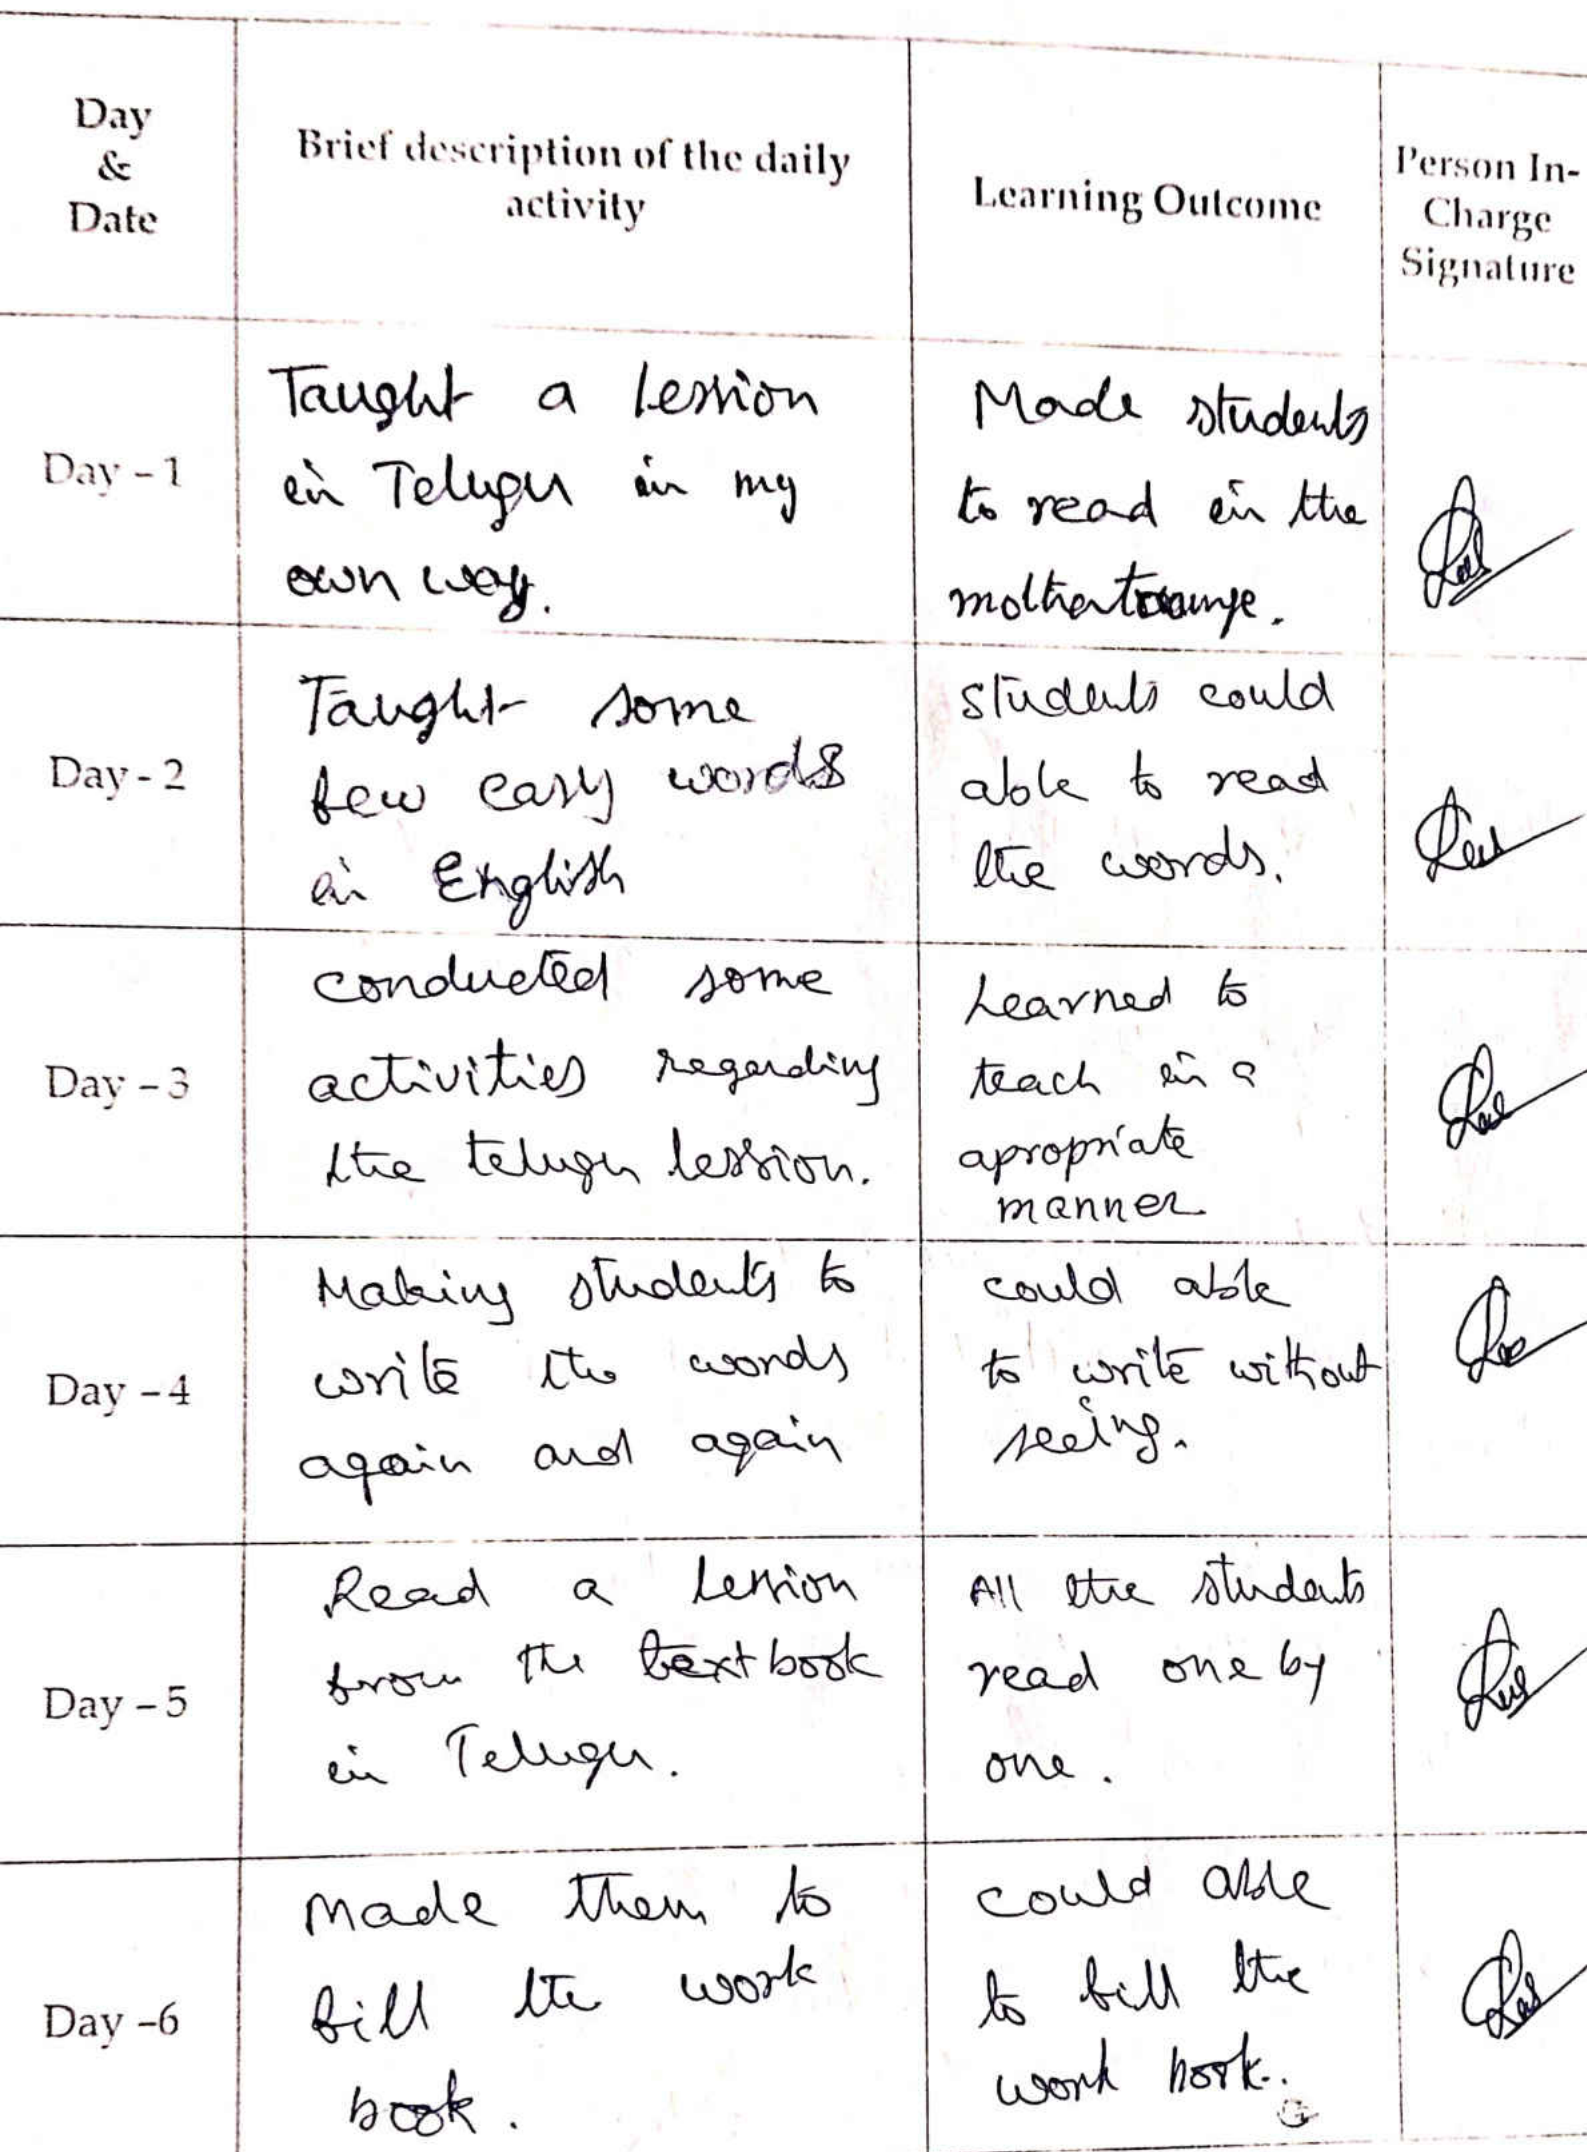 Day
&
Date
Brief description of the daily
activity
Learning Outcome
Person In-
Charge
Signature
Day - 1
Taught a lession
in Telugu in my
own way.
Made students
to read in the
Day - 2
Taught some
few easy words
in English
Students could
able to read
the words.
Day - 3
conducted some
activities regarding
the telugu lession.
Learned to
teach in a
apropriate
manner
Day - 4
Making students to
write the words
again and again
could able
to write without
seeing.
Day - 5
Read a lession
from the text book
in Telugu.
All the students
read one by
one.
Day -6
Made them to
fill the work
book.
could able
to fill the
work book.